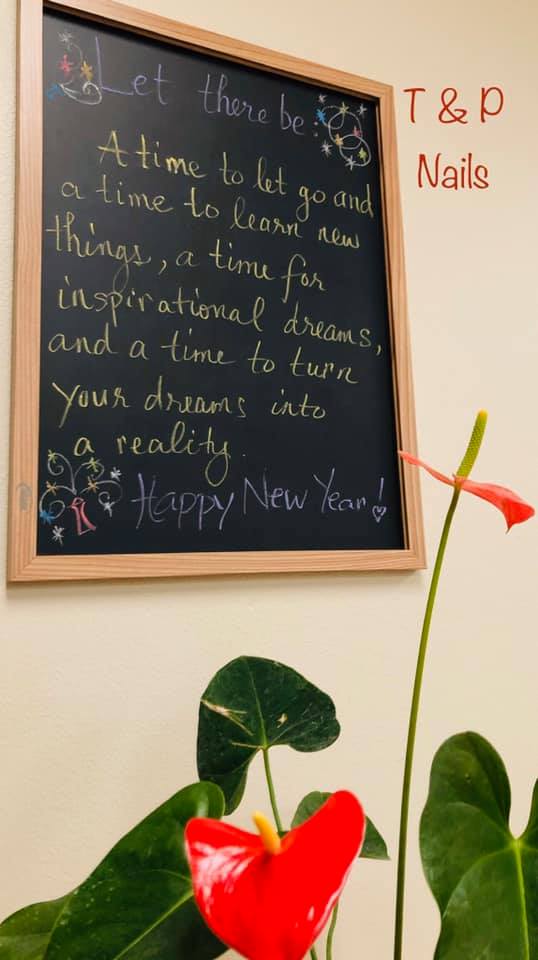 Let there be:
A time to let go and
a time to learn new
things, a time for
inspirational dreams,
and a time to turn
your dreams into
a reality.
Happy New Year!
T & P
Nails